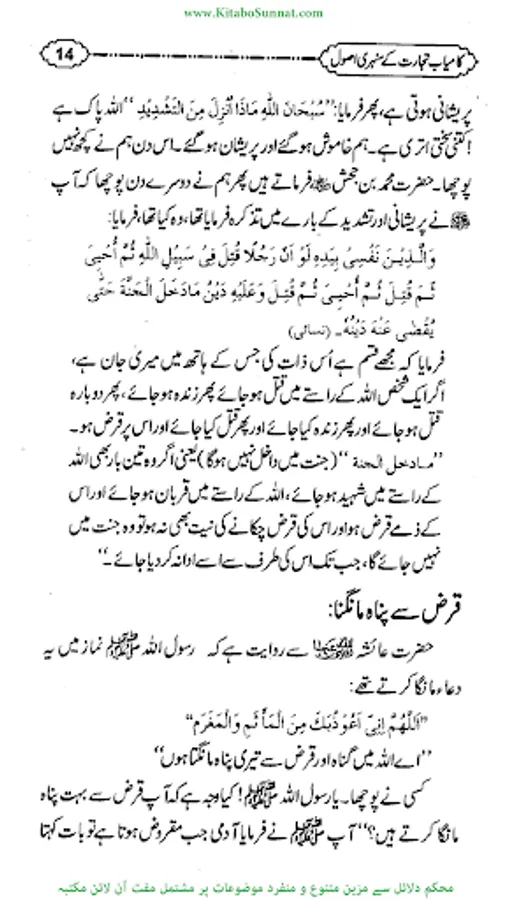 www.KitaboSunnat.com
کامیاب تجارت کے سنہری اصول
14
پریشانی ہوتی ہے، پھر فرمایا: ’’سُبْحَانَ اللهِ مَاذَا اُنْزِلَ مِنَ التَّشْدِیْدِ‘‘ اللہ پاک ہے
! کتنی سختی اتری ہے۔ ہم خاموش ہوگئے اور پریشان ہوگئے۔ اس دن ہم نے کچھ نہیں
پوچھا۔ حضرت محمد بن جحش ؓ فرماتے ہیں پھر ہم نے دوسرے دن پوچھا کہ آپ
ﷺ نے پریشانی اور تشدید کے بارے میں تذکرہ فرمایا تھا، وہ کیا تھا، فرمایا:
وَالَّـذِیْـنَ نَفْسِیْ بِیَدِهٖ لَوْ اَنَّ رَجُلًا قُتِلَ فِیْ سَبِیْلِ اللهِ ثُمَّ أُحْیِیَ
ثُـمَّ قُتِـلَ ثُـمَّ أُحْیِـیَ ثُـمَّ قُتِـلَ وَعَلَیْهِ دَیْنٌ مَادَخَلَ الْجَنَّةَ حَتّٰی
یُقْضٰی عَنْهُ دَیْنُهٗ‘‘۔ (نسائی)
فرمایا کہ مجھے قسم ہے اُس ذات کی جس کے ہاتھ میں میری جان ہے،
اگر ایک شخص اللہ کے راستے میں قتل ہوجائے پھر زندہ ہوجائے، پھر دوبارہ
قتل ہوجائے اور پھر زندہ کیا جائے اور پھر قتل کیا جائے اور اس پر قرض ہو۔
’’مـادخل الجنة‘‘ (جنت میں داخل نہیں ہوگا) یعنی اگر وہ تین بار بھی اللہ
کے راستے میں شہید ہوجائے، اللہ کے راستے میں قربان ہوجائے اور اس
کے ذمے قرض ہو اور اس کی قرض چکانے کی نیت بھی نہ ہو تو وہ جنت میں
نہیں جائے گا، جب تک اس کی طرف سے اسے ادا نہ کردیا جائے۔‘‘
قرض سے پناہ مانگنا:
حضرت عائشہ ؓ سے روایت ہے کہ رسول اللہ ﷺ نماز میں یہ
دعاء مانگا کرتے تھے:
’’اَللّٰهُمَّ اِنِّیْ اَعُوْذُبِكَ مِنَ الْمَأْثَمِ وَالْمَغْرَمِ‘‘
’’اے اللہ میں گناہ اور قرض سے تیری پناہ مانگتا ہوں‘‘
کسی نے پوچھا۔ یا رسول اللہ ﷺ! کیا وجہ ہے کہ آپ قرض سے بہت پناہ
مانگا کرتے ہیں؟‘‘ آپ ﷺ نے فرمایا آدمی جب مقروض ہوتا ہے تو بات کہتا
محکم دلائل سے مزین متنوع و منفرد موضوعات پر مشتمل مفت آن لائن مکتبہ